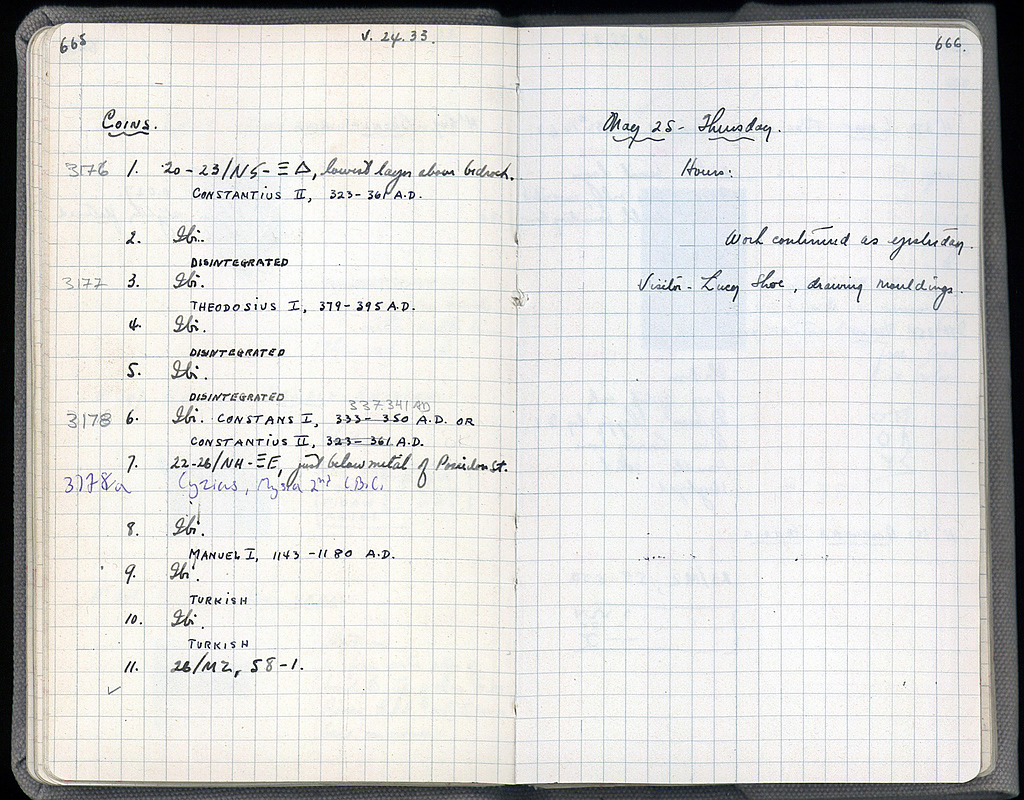 665
V. 24. 33.
COINS.
3176 1. 20-23/ΝϚ-ΞΔ, lowest layer above bedrock.
CONSTANTIUS II, 323-361 A.D.
2. Ibi.
DISINTEGRATED
3177 3. Ibi.
THEODOSIUS I, 379-395 A.D.
4. Ibi.
DISINTEGRATED
5. Ibi.
DISINTEGRATED
337-341 AD
3178 6. Ibi. CONSTANS I, 333-350 A.D. OR
CONSTANTIUS II, 323-361 A.D.
7. 22-26/ΝΗ-ΞΕ, just below metal of Poseidon St.
3178a Cyzicus, Mysia 2nd C.B.C.
8. Ibi.
MANUEL I, 1143-1180 A.D.
9. Ibi.
TURKISH
10. Ibi.
TURKISH
11. 26/ΜΖ, 58-1.
✓
666.
May 25 - Thursday.
Hours:
Work continued as yesterday.
Visitor - Lucy Shoe, drawing mouldings.